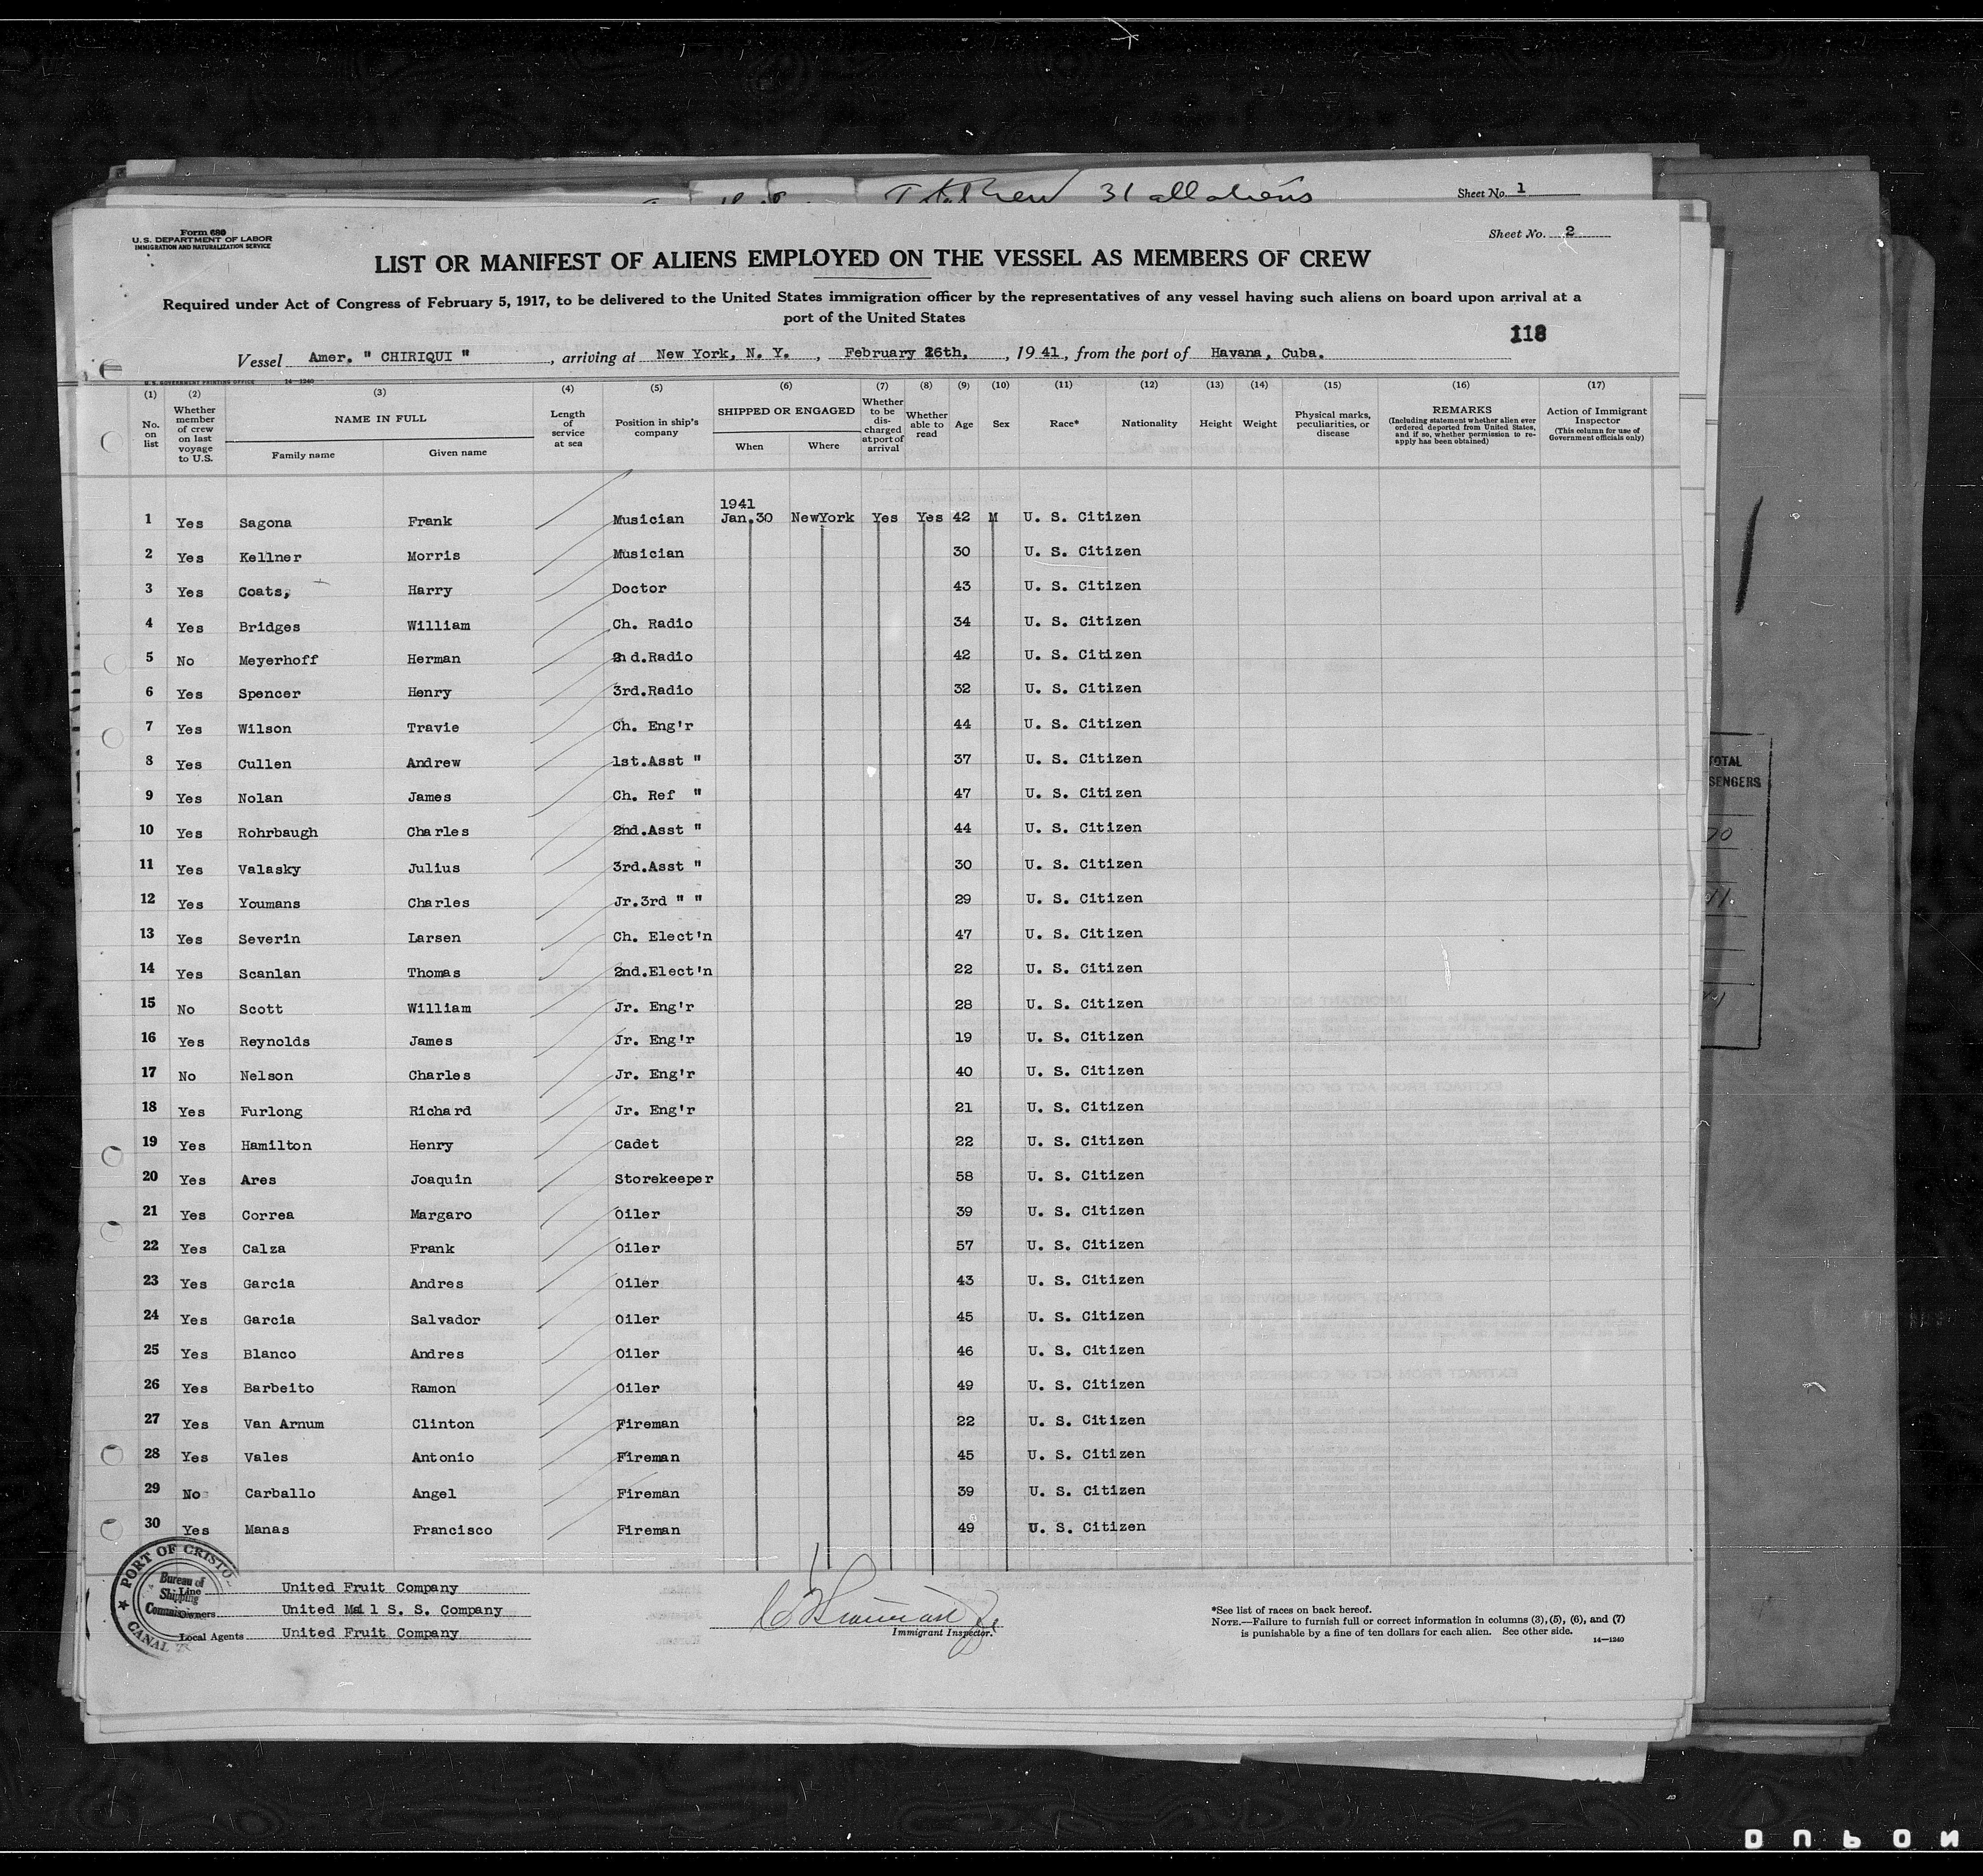 Total Crew 31 all aliens
Sheet No. 1
Form 680
U. S. DEPARTMENT OF LABOR
IMMIGRATION AND NATURALIZATION SERVICE
Sheet No. 2
LIST OR MANIFEST OF ALIENS EMPLOYED ON THE VESSEL AS MEMBERS OF CREW
Required under Act of Congress of February 5, 1917, to be delivered to the United States immigration officer by the representatives of any vessel having such aliens on board upon arrival at a
port of the United States
118
Vessel Amer. " CHIRIQUI " , arriving at New York, N. Y. , February 26th, , 1941, from the port of Havana, Cuba.
U. S. GOVERNMENT PRINTING OFFICE 14—1240
(1) (2) (3) (4) (5) (6) (7) (8) (9) (10) (11) (12) (13) (14) (15) (16) (17)
No. on list
Whether member of crew on last voyage to U.S.
NAME IN FULL
Family name
Given name
Length of service at sea
Position in ship's company
SHIPPED OR ENGAGED
When
Where
Whether to be discharged at port of arrival
Whether able to read
Age
Sex
Race*
Nationality
Height
Weight
Physical marks, peculiarities, or disease
REMARKS
(Including statement whether alien ever ordered deported from United States, and if so, whether permission to reapply has been obtained)
Action of Immigrant Inspector
(This column for use of Government officials only)
1941
1 Yes Sagona Frank Musician Jan.30 NewYork Yes Yes 42 M U. S. Citizen
2 Yes Kellner Morris Musician 30 U. S. Citizen
3 Yes Coats, Harry Doctor 43 U. S. Citizen
4 Yes Bridges William Ch. Radio 34 U. S. Citizen
5 No Meyerhoff Herman 2nd.Radio 42 U. S. Citizen
6 Yes Spencer Henry 3rd.Radio 32 U. S. Citizen
7 Yes Wilson Travie Ch. Eng'r 44 U. S. Citizen
8 Yes Cullen Andrew 1st.Asst " 37 U. S. Citizen
9 Yes Nolan James Ch. Ref " 47 U. S. Citizen
10 Yes Rohrbaugh Charles 2nd.Asst " 44 U. S. Citizen
11 Yes Valasky Julius 3rd.Asst " 30 U. S. Citizen
12 Yes Youmans Charles Jr.3rd " " 29 U. S. Citizen
13 Yes Severin Larsen Ch. Elect'n 47 U. S. Citizen
14 Yes Scanlan Thomas 2nd.Elect'n 22 U. S. Citizen
15 No Scott William Jr. Eng'r 28 U. S. Citizen
16 Yes Reynolds James Jr. Eng'r 19 U. S. Citizen
17 No Nelson Charles Jr. Eng'r 40 U. S. Citizen
18 Yes Furlong Richard Jr. Eng'r 21 U. S. Citizen
19 Yes Hamilton Henry Cadet 22 U. S. Citizen
20 Yes Ares Joaquin Storekeeper 58 U. S. Citizen
21 Yes Correa Margaro Oiler 39 U. S. Citizen
22 Yes Calza Frank Oiler 57 U. S. Citizen
23 Yes Garcia Andres Oiler 43 U. S. Citizen
24 Yes Garcia Salvador Oiler 45 U. S. Citizen
25 Yes Blanco Andres Oiler 46 U. S. Citizen
26 Yes Barbeito Ramon Oiler 49 U. S. Citizen
27 Yes Van Arnum Clinton Fireman 22 U. S. Citizen
28 Yes Vales Antonio Fireman 45 U. S. Citizen
29 No Carballo Angel Fireman 39 U. S. Citizen
30 Yes Manas Francisco Fireman 49 U. S. Citizen
TOTAL
SENGERS
PORT OF CRISTO
Bureau of
Shipping
CANAL
Line United Fruit Company
Owners United Mail S. S. Company
Local Agents United Fruit Company
Immigrant Inspector.
*See list of races on back hereof.
NOTE.—Failure to furnish full or correct information in columns (3), (5), (6), and (7)
is punishable by a fine of ten dollars for each alien. See other side.
14—1240